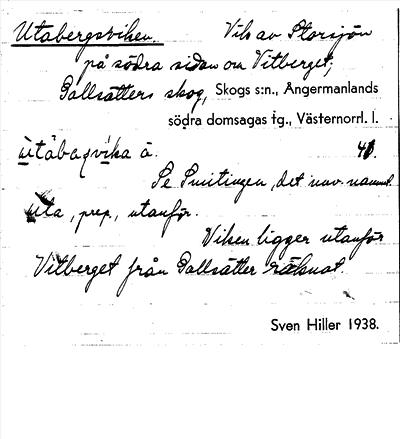 Utabergsviken. Vik av Storsjön
på södra sidan om Vitberget;
Gallsätters skog, Skogs s:n., Ångermanlands
södra domsagas tg., Västernorrl. l.
ùtabaqvika à. 40.
Se Smitingen, det nuv. namnet.
uta, prep., utanför.
Viken ligger utanför
Vitberget från Gallsätter räknat.
Sven Hiller 1938.